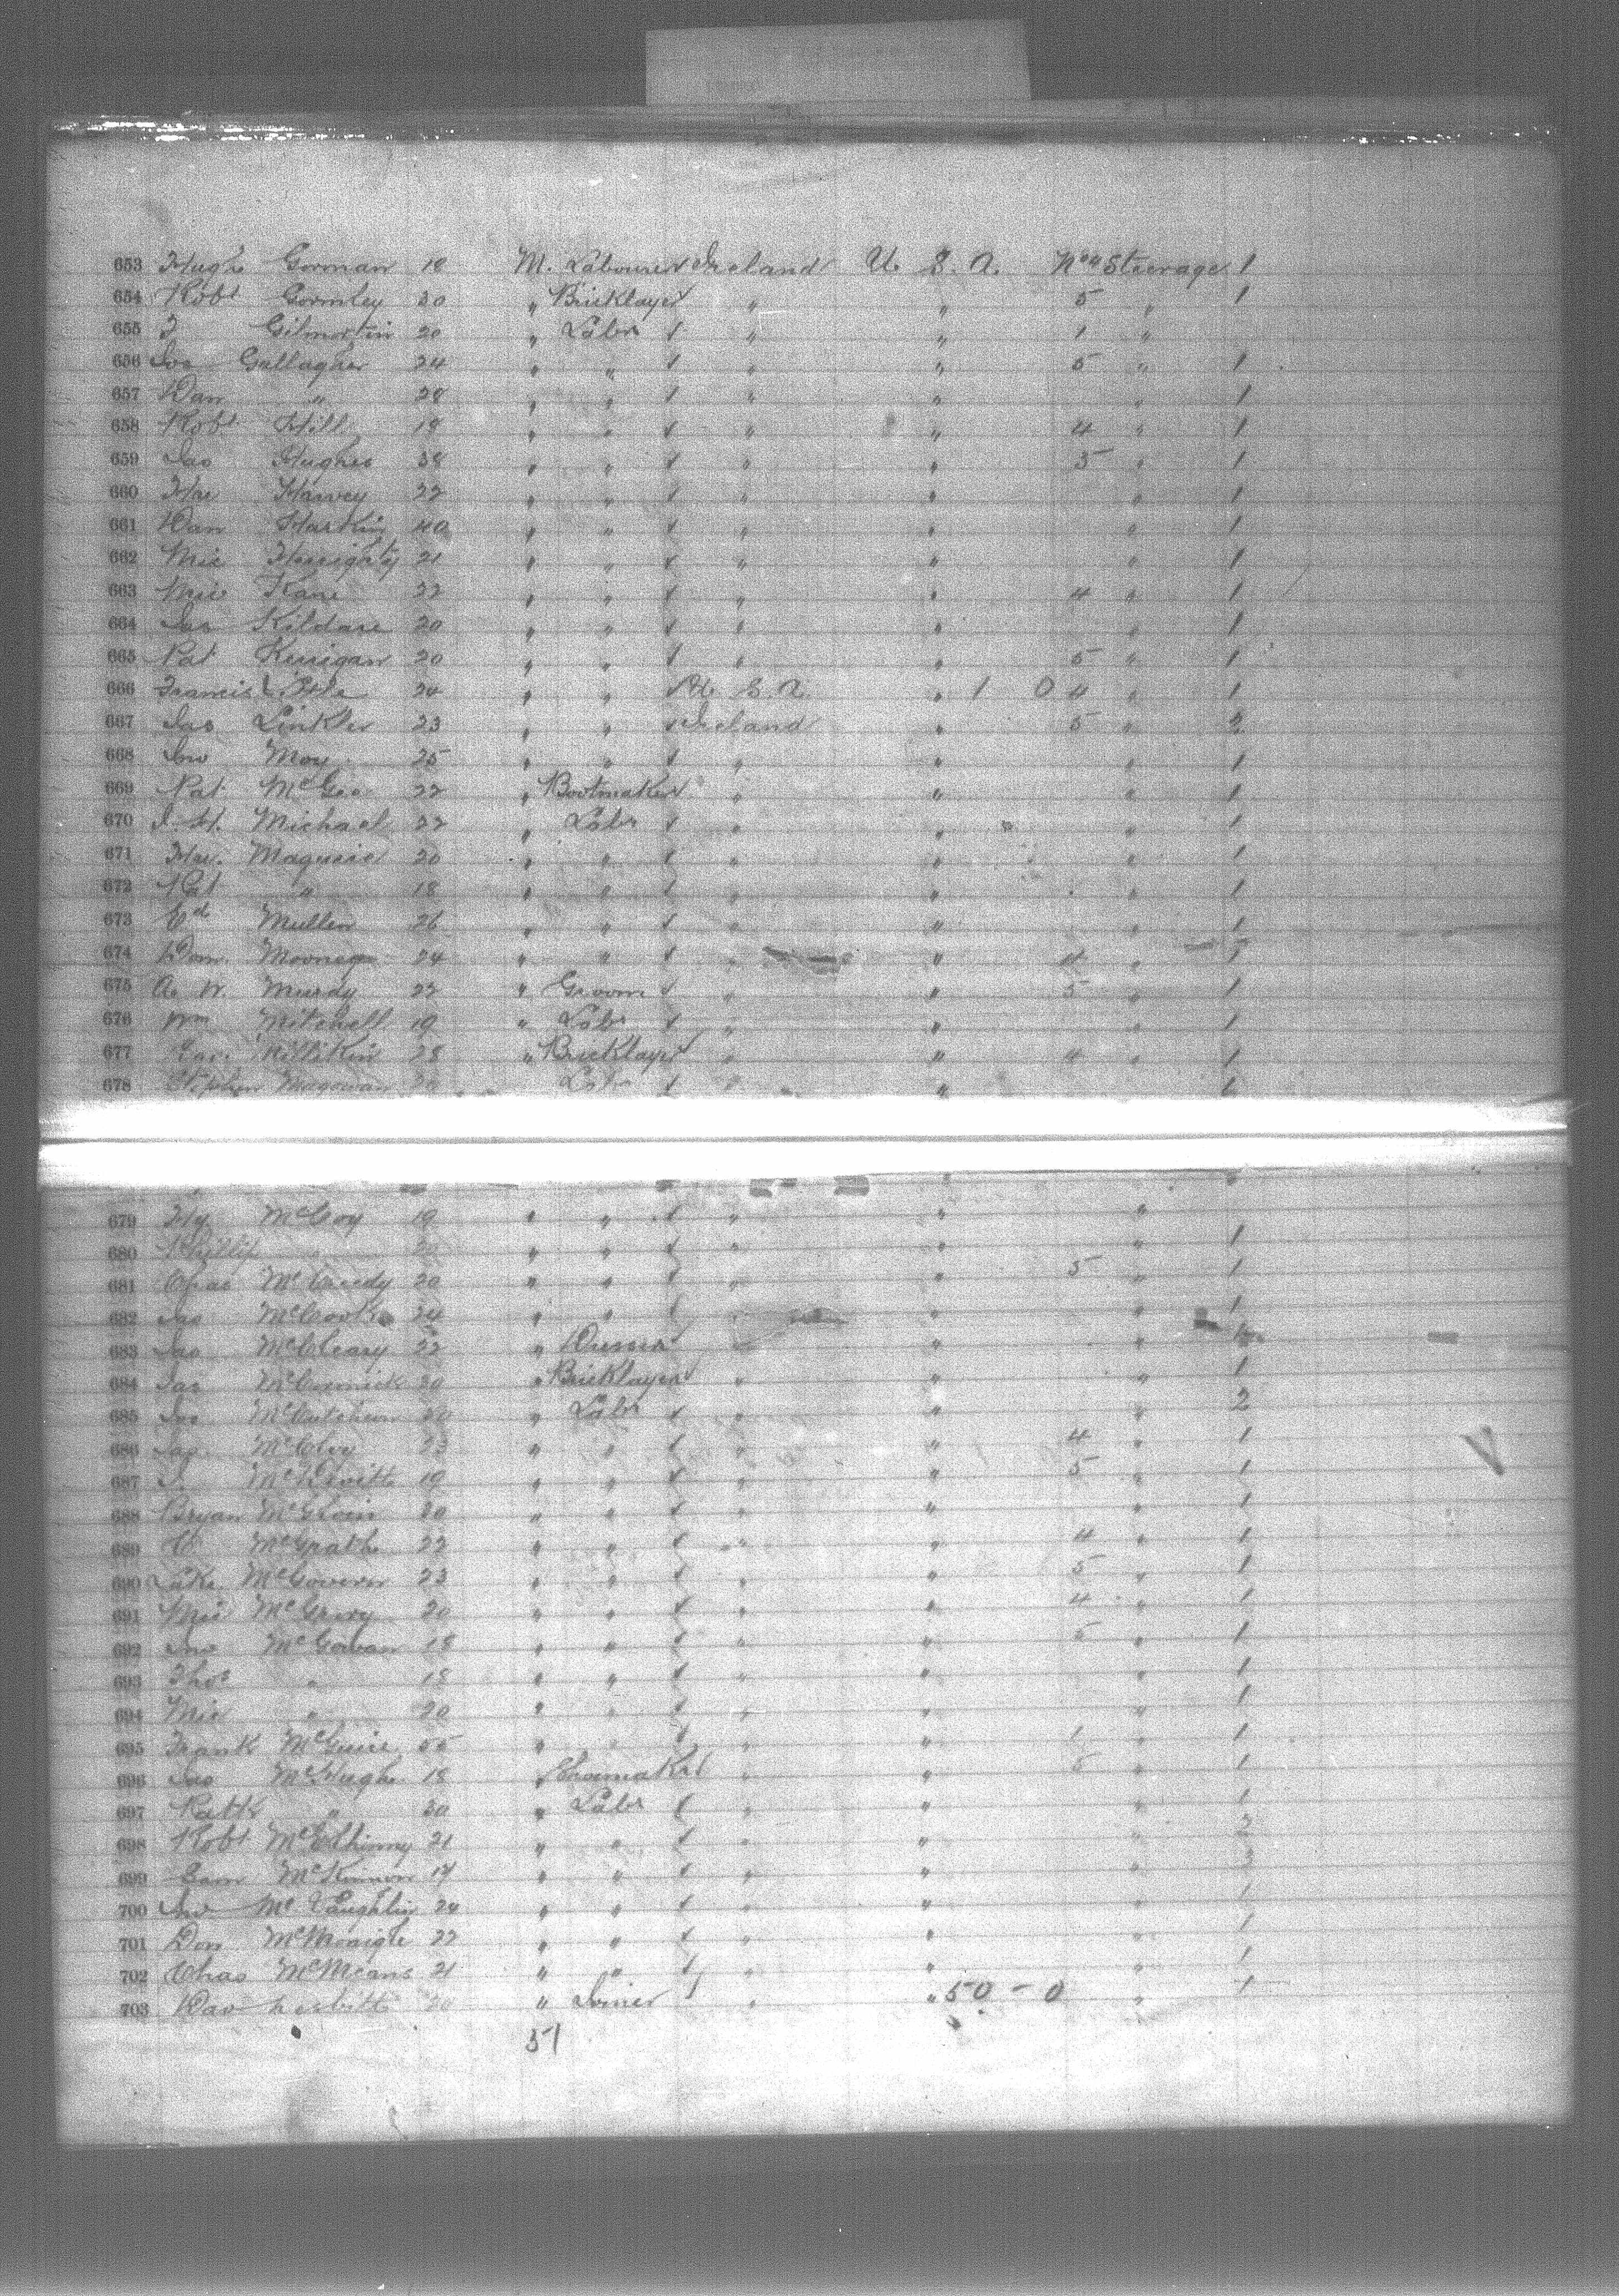 653 Hugh Gorman 18 M. Labourer Ireland U. S. A. No 4 Steerage 1
654 Robt Gormley 30 " Bricklayer " " 5 " 1
655 Gilmartin 20 " Labr " " 1 "
656 Gallagher 24 " " " " 5 " 1
657 Dan " 28 " " " " 1
658 Robt Hill 18 " " " " 4 " 1
659 Jas Hughes 38 " " " " 5 " 1
660 Harvey 22 " " " " " 1
661 Dan Harkin 40 " " " " " 1
662 Mic 21 " " " " " 1
663 Mic Kane 22 " " " " 4 " 1
664 Jas Kildare 20 " " " " " 1
665 Pat Kerrigan 20 " " " " 5 " 1
666 Francis Little 24 " " U. S. A " 1 0 4 " 1
667 Jas 23 " " Ireland " 5 " 2
668 Jno Moy 25 " " " " " 1
669 Pat McGee 22 " Bootmaker " " " 1
670 Michael 22 " Labr " " " 1
671 Maguire 20 " " " " " 1
672 Pat " 18 " " " " " 1
673 Ed Mullen 26 " " " " " 1
674 Mooney 24 " " " " 4 "
675 A. W. 22 " Groom " " 5 " 1
676 Wm Mitchell 19 " Labr " " " 1
677 Millikin 28 " Bricklayer " " 4 " 1
678 Stephen Magowan Labr "
679 Hy McCoy 19 " " " " "
680 Phillip " 20 " " " " " 1
681 Chas 20 " " " " 5 " 1
682 Jas McCook 24 " " " " " 1
683 Jas McCleary 22 " " " "
684 Jas McCormick 20 " Bricklayer " " " 1
685 McCutcheon 20 " Labr " " " 2
686 Jas 23 " " " " 4 " 1
687 J. McDevitt 19 " " " " 5 " 1
688 Bryan McGloin 20 " " " " " 1
689 McGrath 22 " " " " 4 " 1
690 Luke McGovern 23 " " " " 5 " 1
691 Mic 20 " " " " 4 " 1
692 Jno McGowan 18 " " " " 5 " 1
693 Thos " 18 " " " " " 1
694 Mic " 20 " " " " " 1
695 Frank McGuire 55 " " " " 1 " 1
696 Jas McHugh 18 " Shoemaker " " 5 " 1
697 Patk " 30 " Labr " " " 1
698 Robt McElhinny 21 " " " " " 2
699 Sam McKinnon " " " " "
700 Jno McLaughlin 24 " " " " " 1
701 Don McMonigle 22 " " " " 1
702 Chas McMeans 21 " " " " " 1
703 Dav Nesbitt 20 " Joiner " " 50 - 0 " 1
51